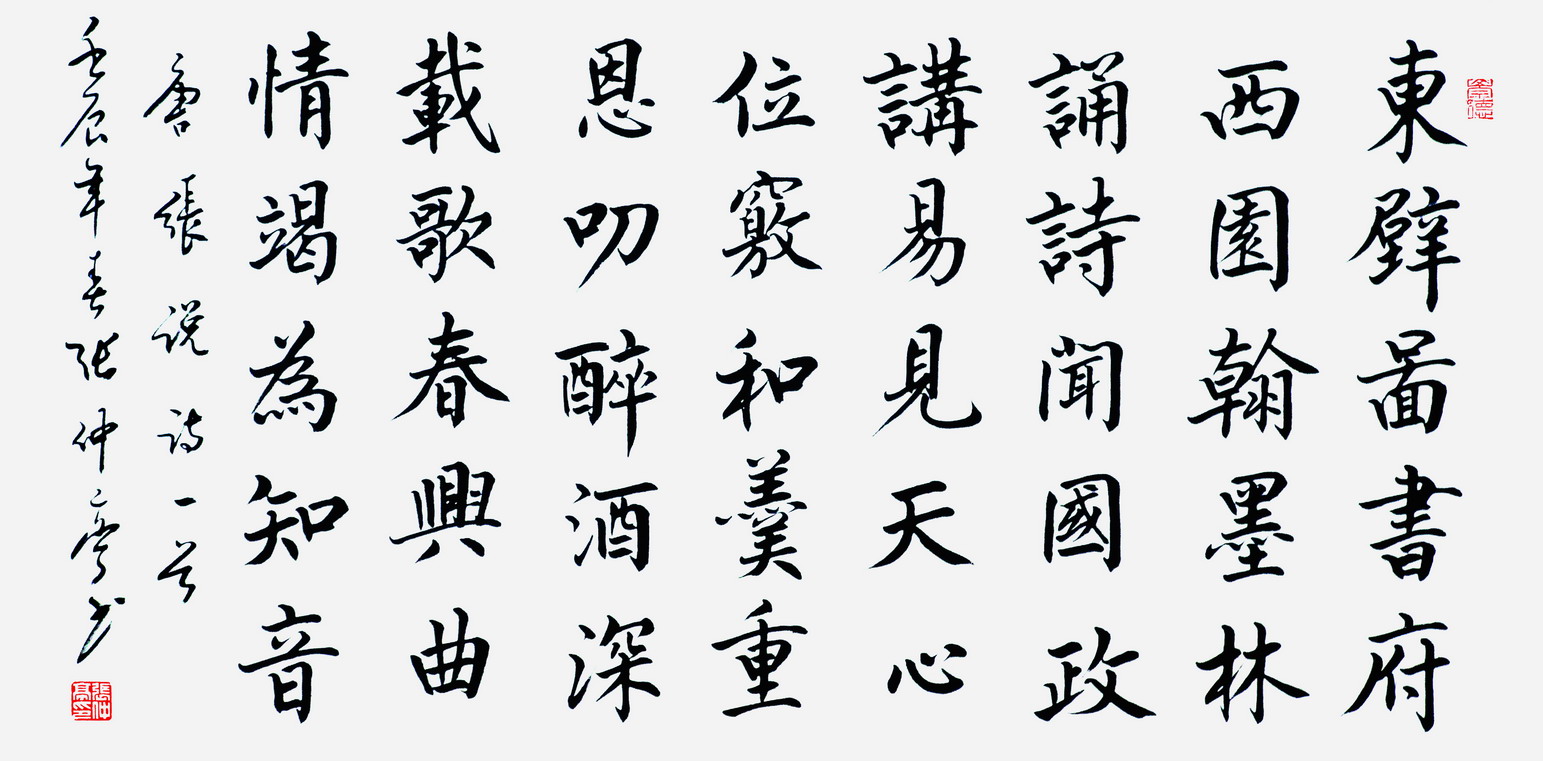 崇德
東壁啚書府
西園翰墨林
誦詩聞國政
講易見天心
位竅和羹重
恩叨醉酒深
載歌春興曲
情竭為知音
唐張说诗一首
壬辰年春张仲亭书
張仲亭印